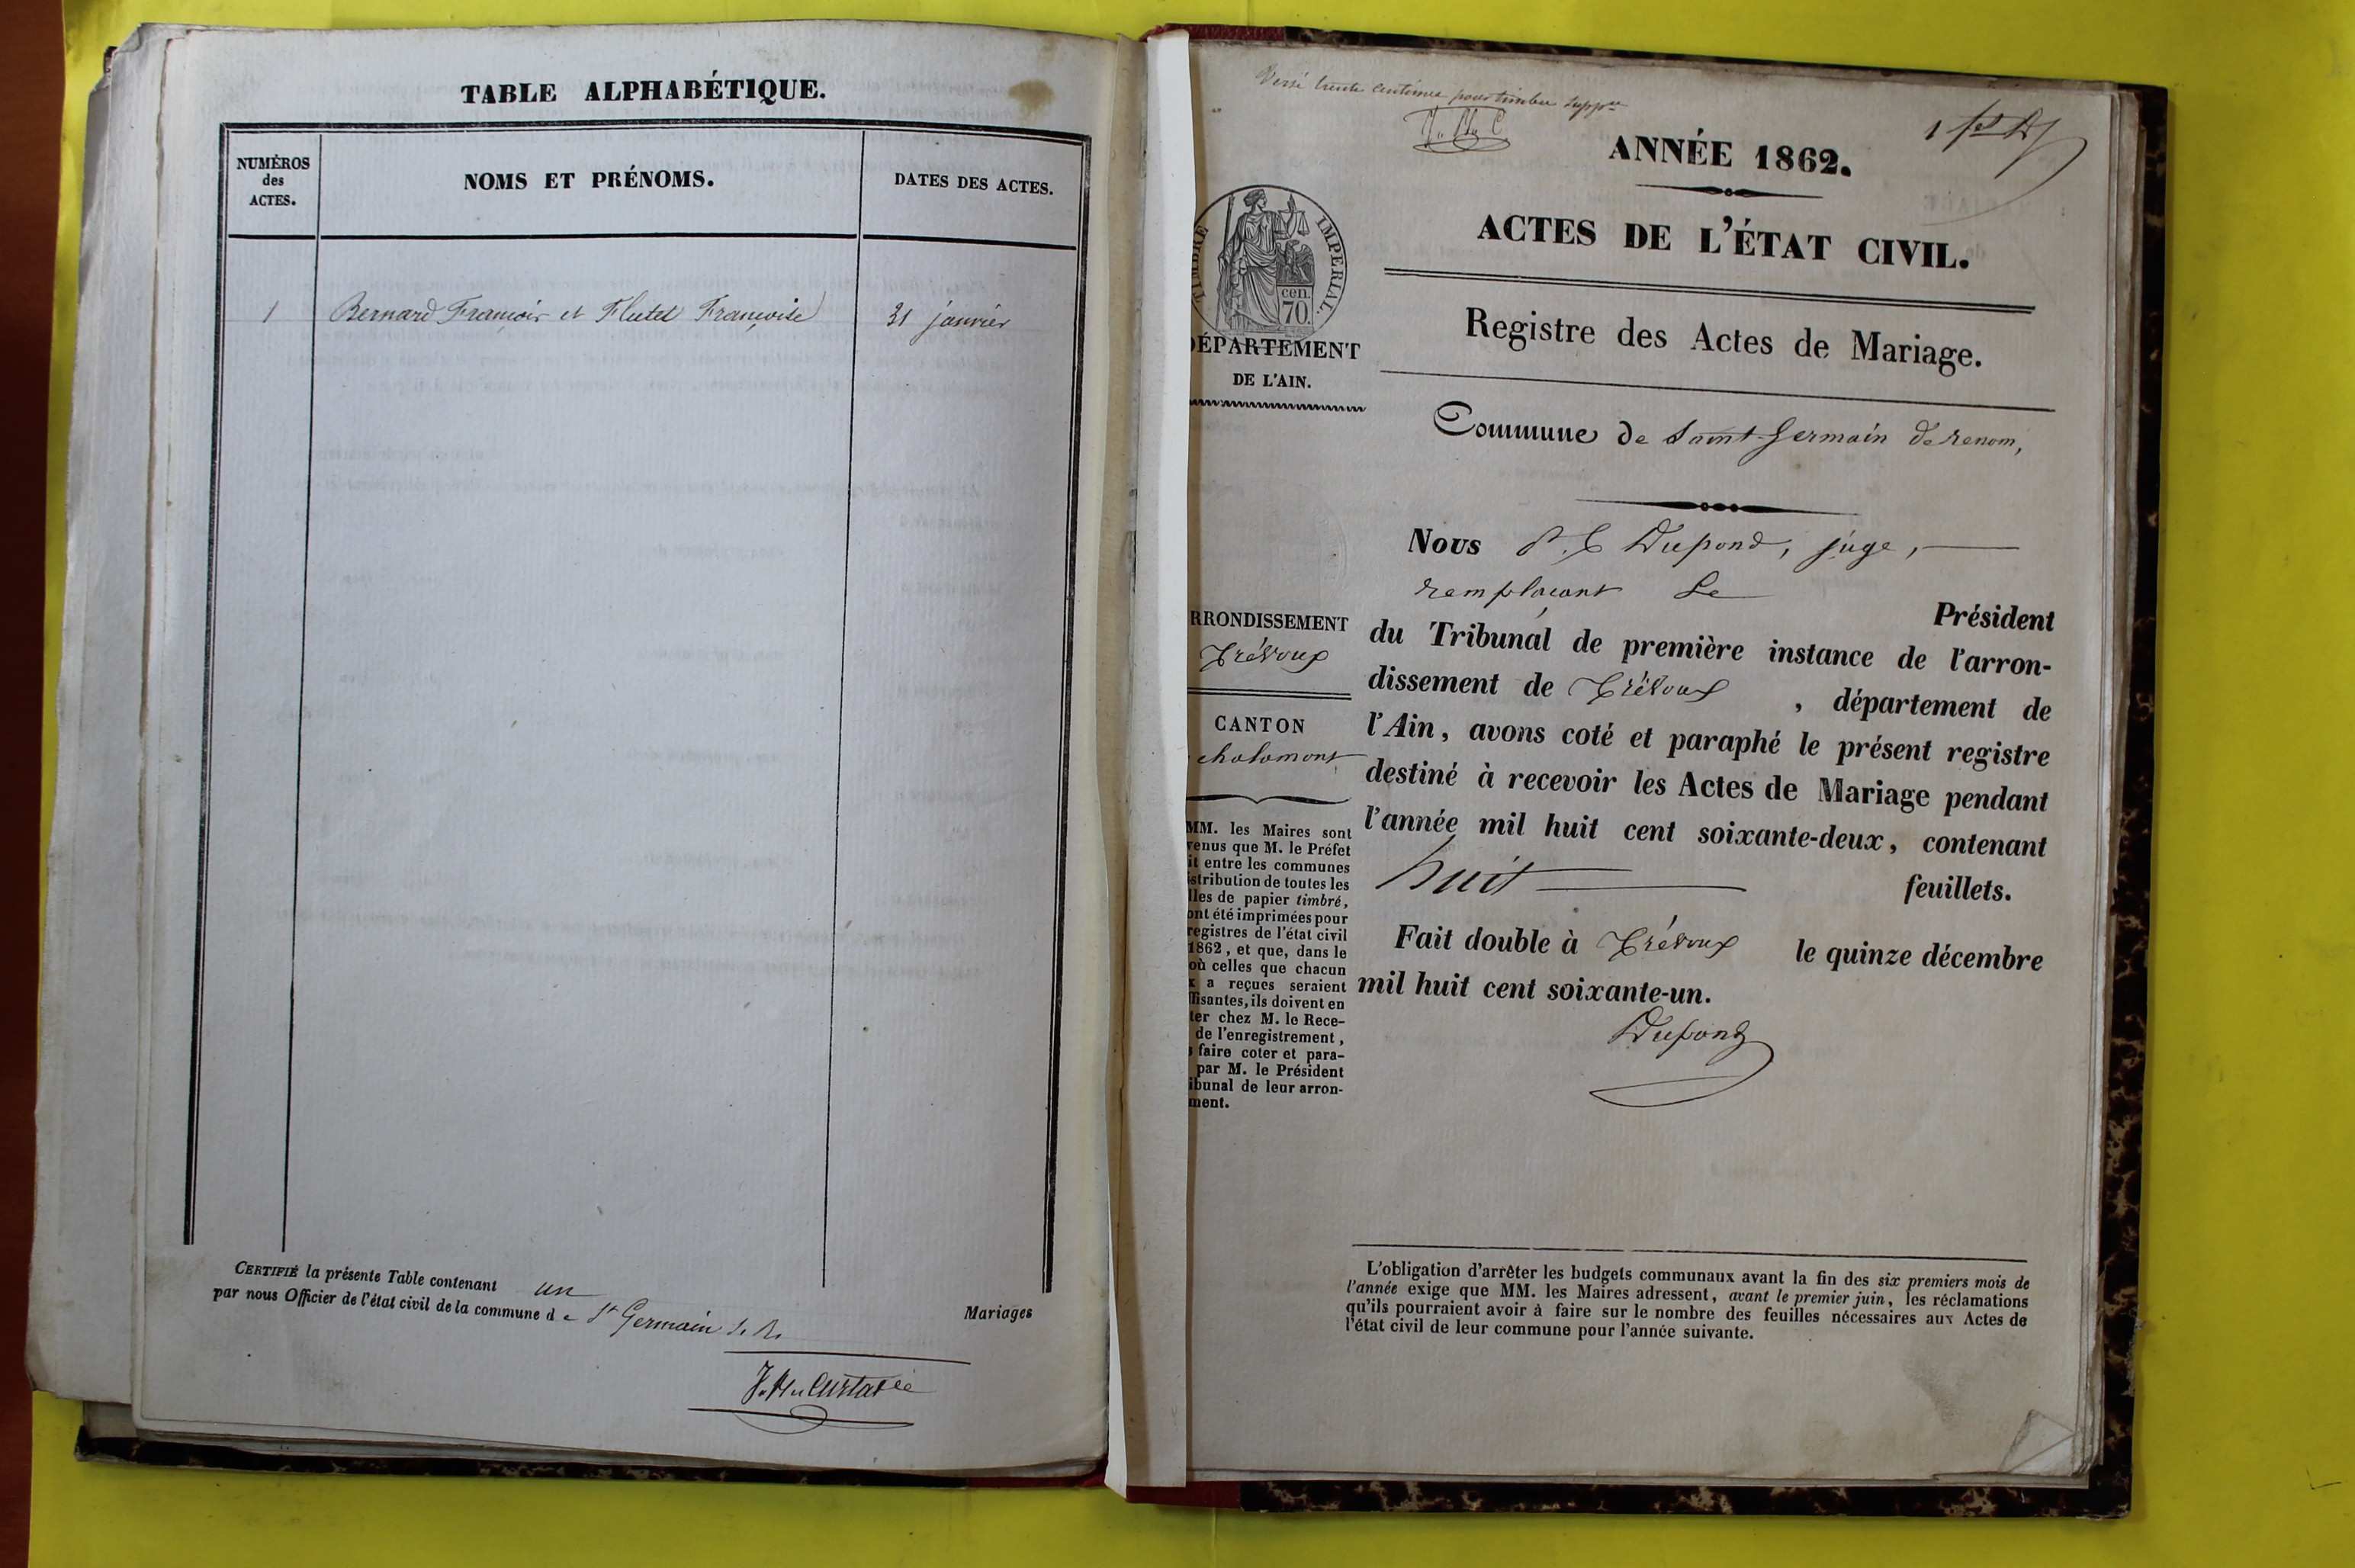 TABLE ALPHABÉTIQUE.
NUMÉROS
des
ACTES.
NOMS ET PRÉNOMS.
DATES DES ACTES.
1 Bernard François et Flutet Françoise 31 janvier
CERTIFIÉ la présente Table contenant un Mariages
par nous Officier de l'état civil de la commune de St Germain de R.
Versé trente centimes pour timbre suppre
ANNÉE 1862.
ACTES DE L'ÉTAT CIVIL.
Registre des Actes de Mariage.
TIMBRE IMPERIAL.
cen.
70.
DÉPARTEMENT
DE L'AIN.
Commune de Saint-Germain de renom,
Nous P. C Dupond, juge,
remplaçant Le
Président
du Tribunal de première instance de l'arron-
dissement de Trévoux , département de
l'Ain, avons coté et paraphé le présent registre
destiné à recevoir les Actes de Mariage pendant
l'année mil huit cent soixante-deux, contenant
huit feuillets.
Fait double à Trévoux le quinze décembre
mil huit cent soixante-un.
Dupond
RRONDISSEMENT
Trévoux
CANTON
chalamont
MM. les Maires sont
venus que M. le Préfet
it entre les communes
stribution de toutes les
lles de papier timbré,
ont été imprimées pour
registres de l'état civil
1862, et que, dans le
où celles que chacun
x a reçues seraient
ffisantes, ils doivent en
ter chez M. le Rece-
de l'enregistrement,
s faire coter et para-
par M. le Président
ibunal de leur arron-
ment.
L'obligation d'arrêter les budgets communaux avant la fin des six premiers mois de
l'année exige que MM. les Maires adressent, avant le premier juin, les réclamations
qu'ils pourraient avoir à faire sur le nombre des feuilles nécessaires aux Actes de
l'état civil de leur commune pour l'année suivante.